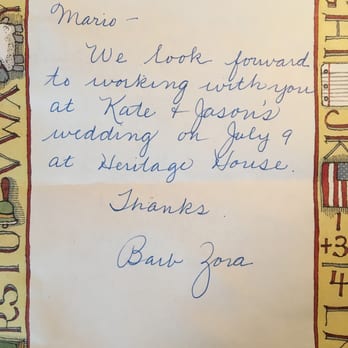 Mario -
We look forward
to working with you
at Kate & Jason's
wedding on July 9
at Heritage House.
Thanks
Barb Zora
VWXY
RSTU
HI
JK
1
+3
4
L